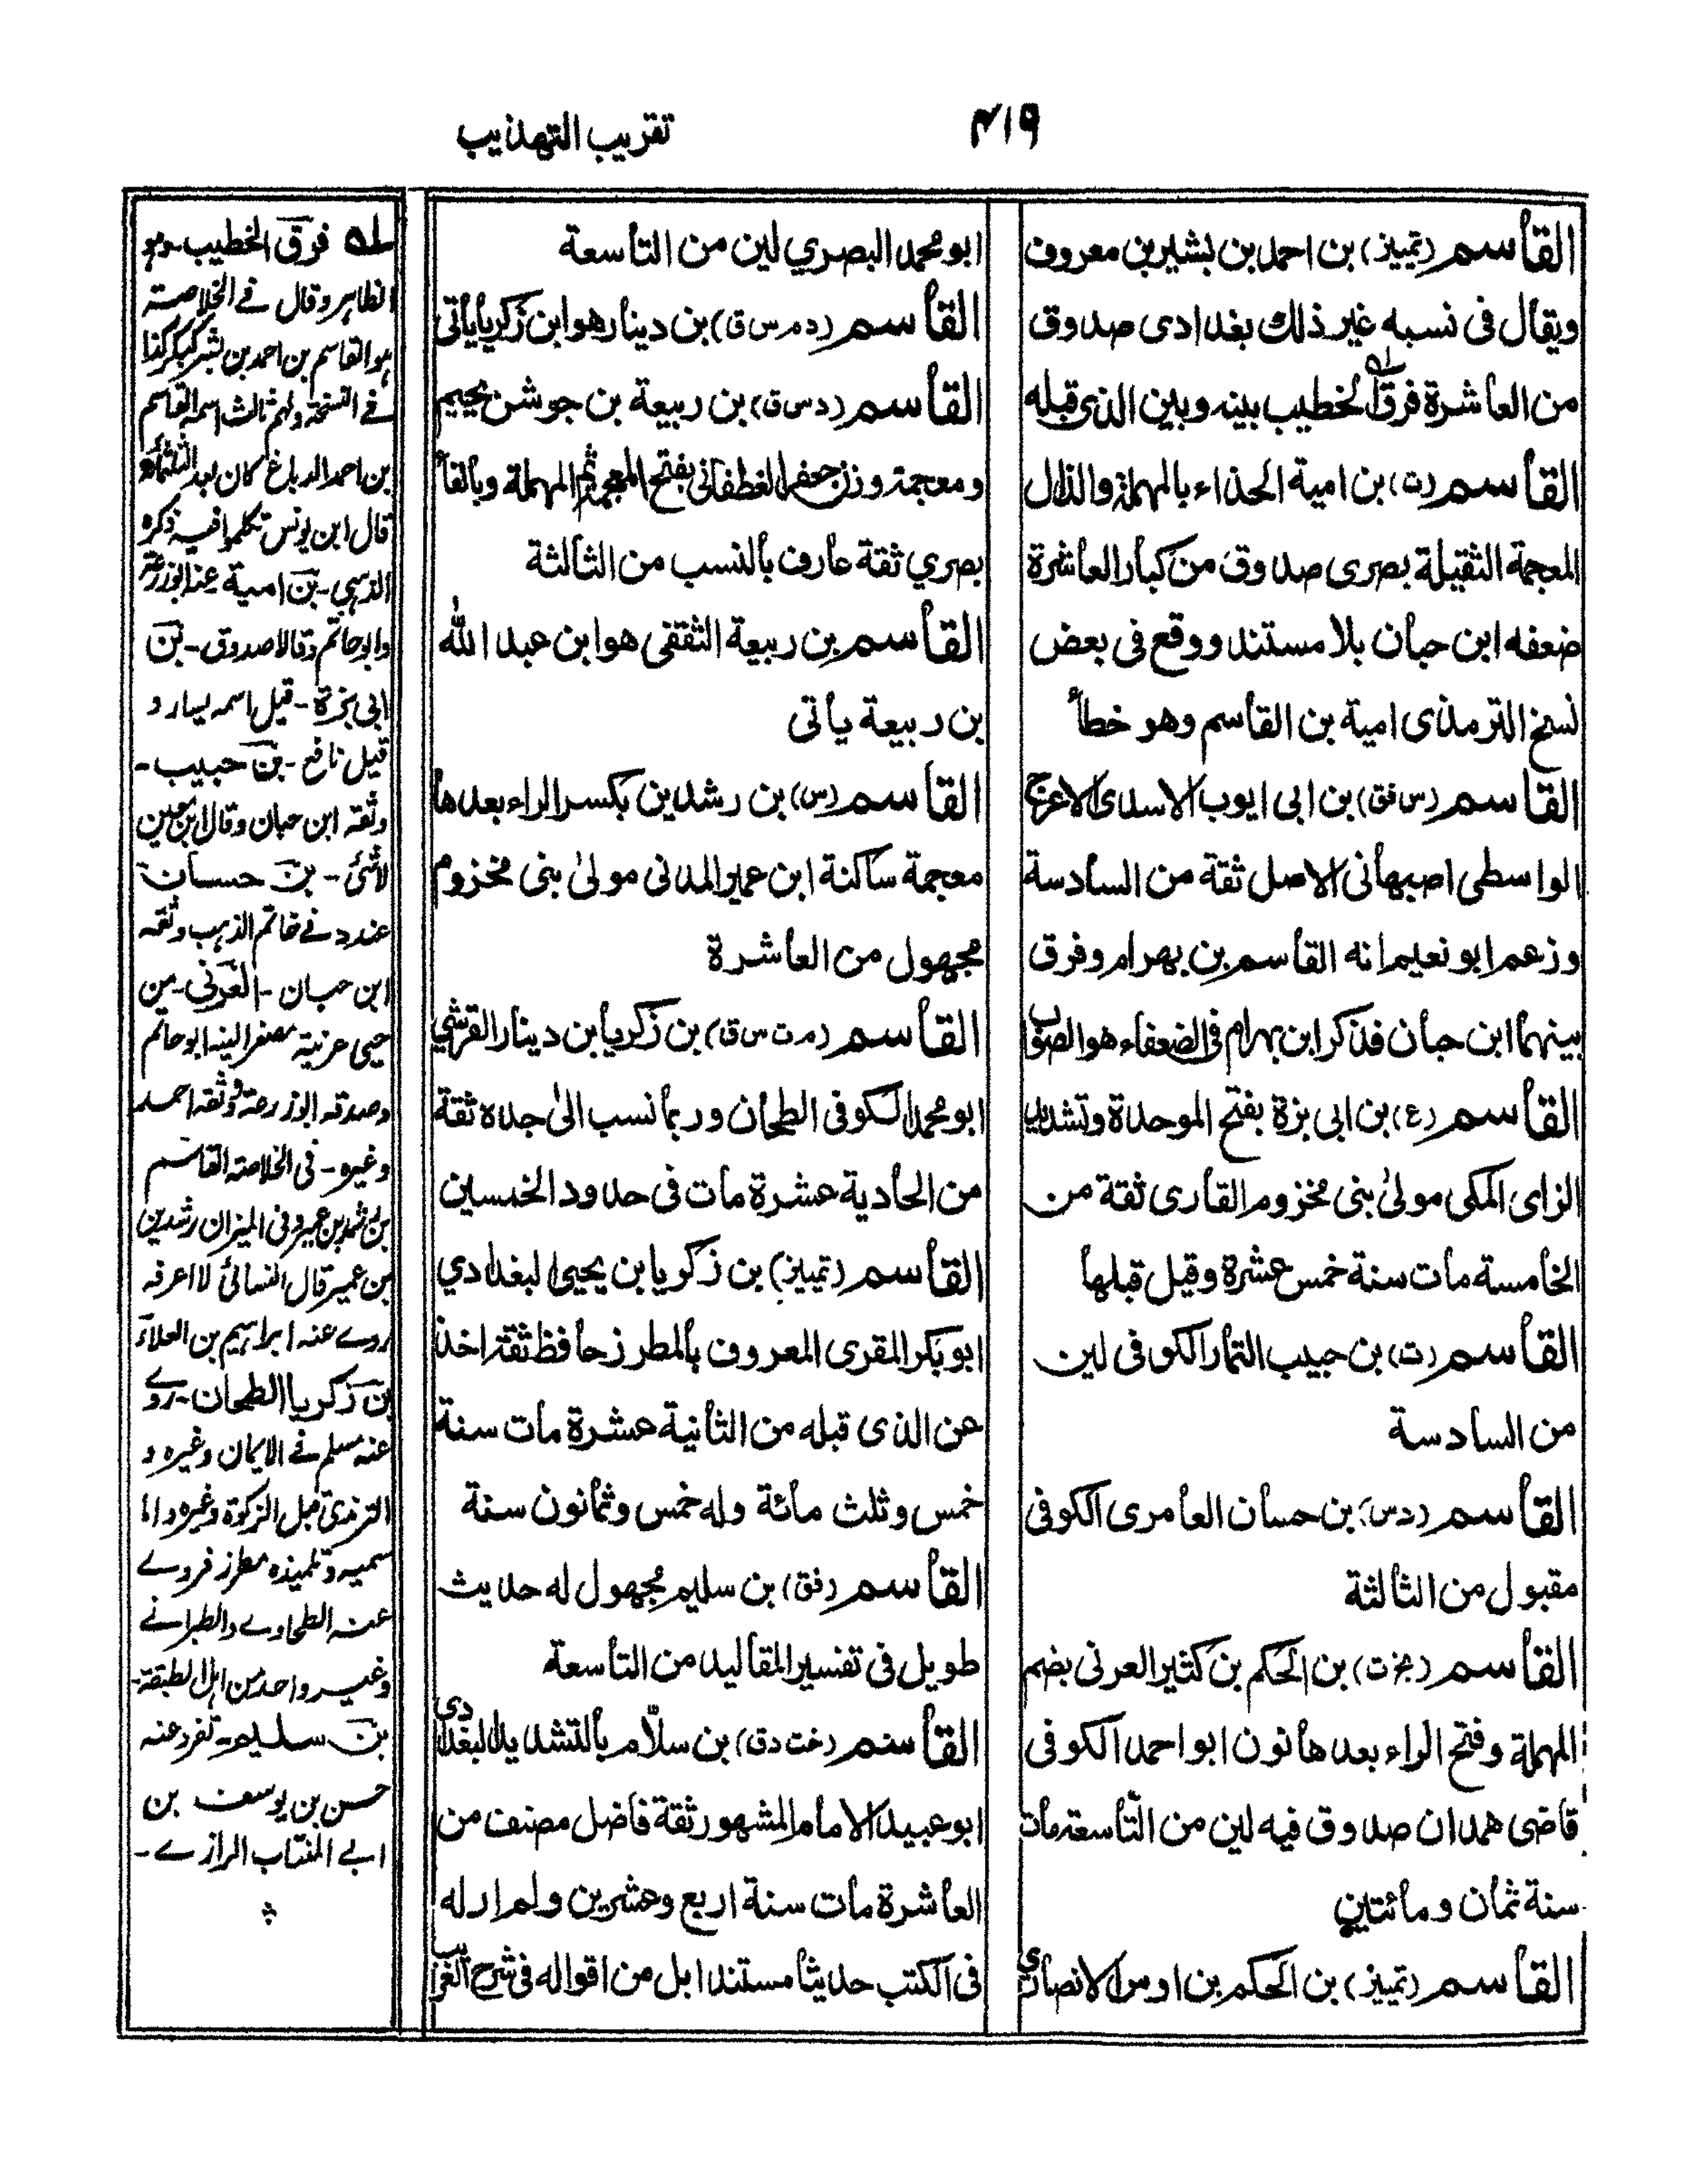 ۴۱۹
تقريب التهذيب
القاسم (تمييز) بن احمد بن بشير بن معروف
ويقال فى نسبه غير ذلك بغدادى صدوق
من العاشرة فرق الخطيب بينه وبين الذى قبله
القاسم (ت) بن امية الحذاء بالمهملة والذال
المعجمة الثقيلة بصرى صدوق من كبار العاشرة
ضعفه ابن حبان بلا مستند ووقع فى بعض
نسخ الترمذى امية بن القاسم وهو خطأ
القاسم (س فق) بن ابى ايوب الاسدى الاعرج
الواسطى اصبهانى الاصل ثقة من السادسة
وزعم ابو نعيم انه القاسم بن بهرام وفرق
بينهما ابن حبان فذكر ابن بهرام فى الضعفاء هو الصواب
القاسم (ع) بن ابى بزة بفتح الموحدة وتشديد
الزاى المكى مولىٰ بنى مخزوم القارى ثقة من
الخامسة مات سنة خمس عشرة وقيل قبلها
القاسم (ت) بن حبيب التمار الكوفى لين
من السادسة
القاسم (د س) بن حسان العامرى الكوفى
مقبول من الثالثة
القاسم (بخ ت) بن الحكم بن كثير العرنى بضم
المهملة وفتح الراء بعدها نون ابو احمد الكوفى
قاضى همدان صدوق فيه لين من التاسعة مات
سنة ثمان ومائتين
القاسم (تمييز) بن الحكم بن اوس الانصارى
ابو محمد البصري لين من التاسعة
القاسم (د م س ق) بن دينار هو ابن زكريا ياتى
القاسم (د س ق) بن ربيعة بن جوشن بجيم
ومعجمة وزن جعفر الغطفانى بفتح المعجمة ثم المهملة وبالفا
بصري ثقة عارف بالنسب من الثالثة
القاسم بن ربيعة الثقفى هو ابن عبد الله
بن ربيعة ياتى
القاسم (س) بن رشدين بكسر الراء بعدها
معجمة ساكنة ابن عمير المدنى مولىٰ بنى مخزوم
مجهول من العاشرة
القاسم (م ت س ق) بن زكريا بن دينار القرشي
ابو محمد الكوفى الطحان وربما نسب الىٰ جده ثقة
من الحادية عشرة مات فى حدود الخمسين
القاسم (تمييز) بن زكريا بن يحيى البغدادي
ابو بكر المقرى المعروف بالمطرز حافظ ثقة اخذ
عن الذى قبله من الثانية عشرة مات سنة
خمس وثلث مائة وله خمس وثمانون سنة
القاسم (فق) بن سليم مجهول له حديث
طويل فى تفسير المقاليد من التاسعة
القاسم (خت د ق) بن سلّام بالتشديد البغدادى
ابو عبيد الامام المشهور ثقة فاضل مصنف من
العاشرة مات سنة اربع وعشرين ولم ار له
فى الكتب حديثا مستندا بل من اقواله فى شرح الغريب
له فرق الخطيب ـ وهو
الظاهر وقال في الخلاصة
هو القاسم بن احمد بن بشر كذا
في النسخة ولهم ثالث اسمه القاسم
بن احمد الدباغ كان بعد الثلثمائة
قال ابن يونس تكلموا فيه ذكره
الذهبي ـ بن امية عنه ابو زرعة
وابو حاتم وقالا صدوق ـ بن
ابى بزة ـ قيل اسمه يسار و
قيل نافع ـ بن حبيب ـ
وثقه ابن حبان وقال ابن معين
لا شئ ـ بن حسان
عند د في خاتم الذهب وثقه
ابن حبان ـ العرني ـ من
حيى عرنية مصغر الينه ابو حاتم
وصدوقه ابو زرعة وثقه احمد
وغيره ـ فى الخلاصة القاسم
بن رشد بن عمير وفى الميزان رشدين
بن عمير قال النسائى لا اعرفه
روے عنه ابراهيم بن العلاء
بن زكريا الطحان ـ روے
عنه مسلم في الايمان وغيره و
الترمذى قبل الزكوة وغيره واما
سميه وتلميذه مطرز فروے
عنه الطحاوے والطبرانے
وغير واحد من اهل الطبقة ـ
بن سليم ـ تفرد عنه
حسن بن يوسف بن
ابے المنتاب الرازے ـ